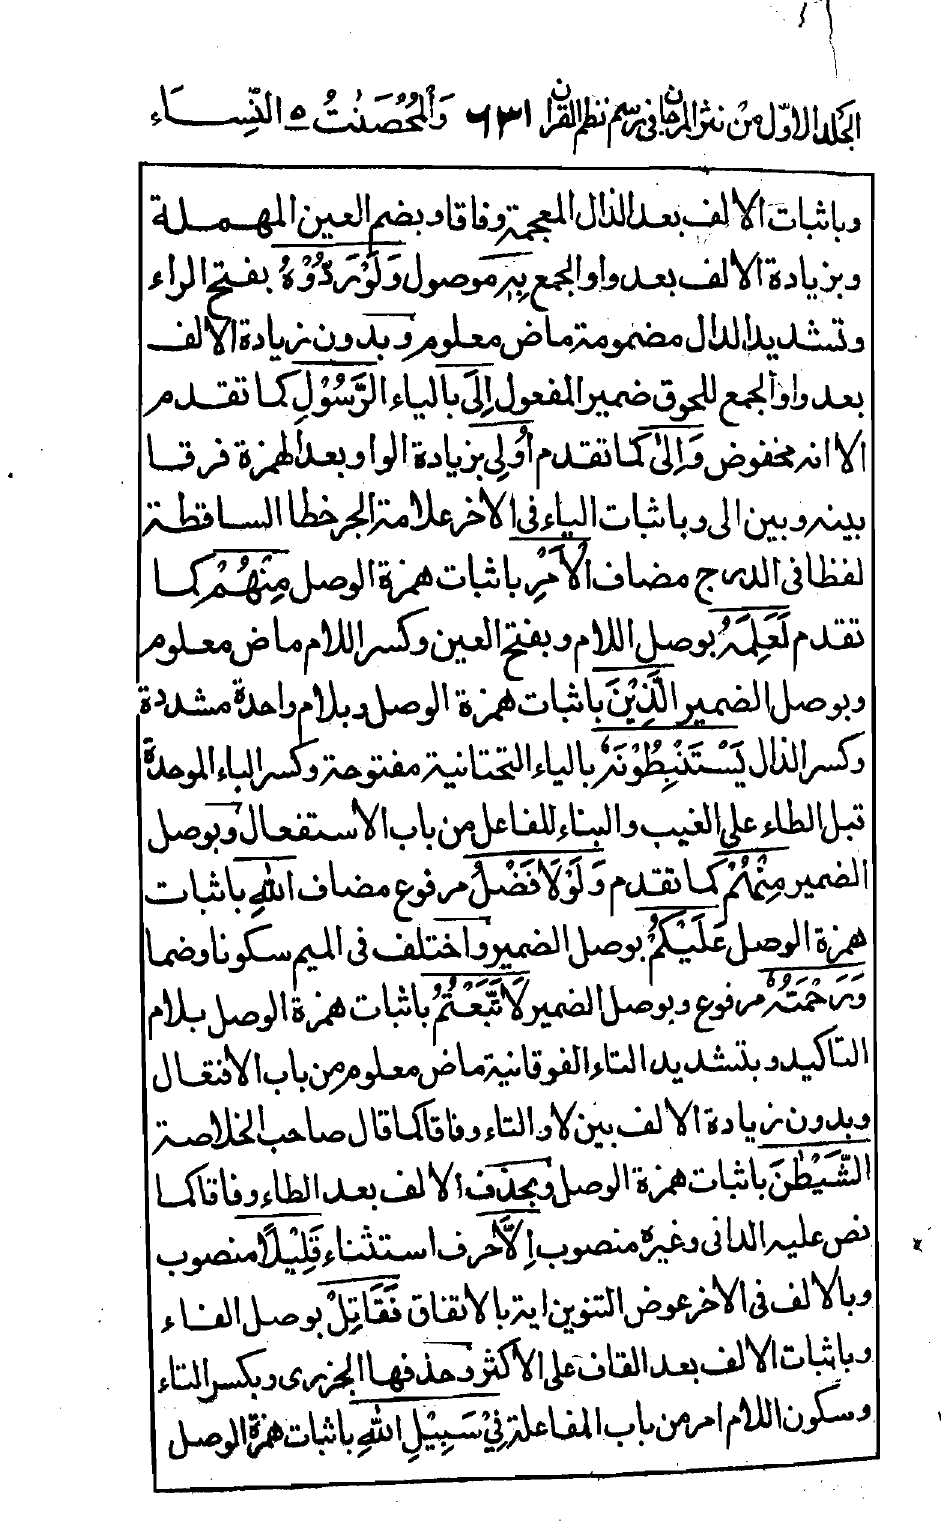 الجلد الاول من نثر المرجان في رسم نظم القران ٦٣١ وَالْمُحْصَنٰتُ ٥ النِّسَاء
وباثبات الالف بعد الذال المعجمة وفاقا وبضم العين المهملة
وبزيادة الالف بعد واو الجمع بِهٖ موصول وَلَوْ رَدُّوْهُ بفتح الراء
وتشديد الدال مضمومة ماض معلوم وبدون زيادة الالف
بعد واو الجمع للحوق ضمير المفعول اِلَى بالياء الرَّسُوْلِ كما تقدم
الا انه مخفوض وَاِلٰى كما تقدم اُولِى بزيادة الواو بعد الهمزة فرقا
بينه وبين الى وباثبات الياء فى الاخر علامة الجر خطا الساقطة
لفظا فى الدرج مضاف الْاَمْرِ باثبات همزة الوصل مِنْهُمْ كما
تقدم لَعَلِمَهُ بوصل اللام وبفتح العين وكسر اللام ماض معلوم
وبوصل الضمير الَّذِيْنَ باثبات همزة الوصل وبلام واحدة مشددة
وكسر الذال يَسْتَنْبِطُوْنَهٗ بالياء التحتانية مفتوحة وكسر الباء الموحدة
قبل الطاء على الغيب والبناء للفاعل من باب الاستفعال وبوصل
الضمير مِنْهُمْ كما تقدم وَلَوْلَا فَضْلُ مرفوع مضاف اللّٰهِ باثبات
همزة الوصل عَلَيْكُمْ بوصل الضمير واختلف فى الميم سكونا وضما
وَرَحْمَتُهٗ مرفوع وبوصل الضمير لَاتَّبَعْتُمْ باثبات همزة الوصل بلام
التاكيد وبتشديد التاء الفوقانية ماض معلوم من باب الافتعال
وبدون زيادة الالف بين لا والتاء وفاقا كما قال صاحب الخلاصة
الشَّيْطٰنَ باثبات همزة الوصل وبحذف الالف بعد الطاء وفاقا كما
نص عليه الدانى وغيره منصوب اِلَّا حرف استثناء قَلِيْلًا منصوب
وبالالف فى الاخر عوض التنوين اية بالاتفاق فَقَاتِلْ بوصل الفاء
وباثبات الالف بعد القاف على الاكثر وحذفها الجزرى وبكسر التاء
وسكون اللام امر من باب المفاعلة فِيْ سَبِيْلِ اللّٰهِ باثبات همزة الوصل